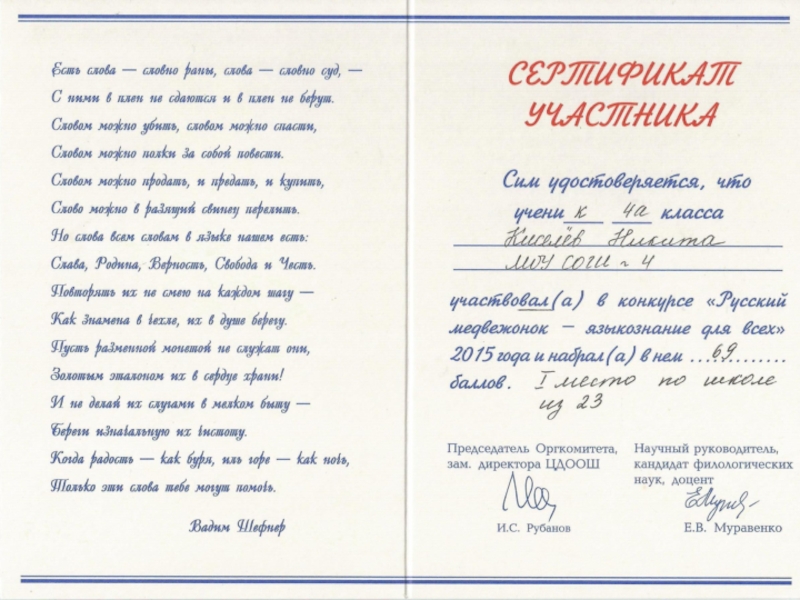 Есть слова — словно раны, слова — словно суд, —
С ними в плен не сдаются и в плен не берут.
Словом можно убить, словом можно спасти,
Словом можно полки за собой повести.
Словом можно продать, и предать, и купить,
Слово можно в разящий свинец перелить.
Но слова всем словам в языке нашем есть:
Слава, Родина, Верность, Свобода и Честь.
Повторять их не смею на каждом шагу —
Как знамена в чехле, их в душе берегу.
Пусть разменной монетой не служат они,
Золотым эталоном их в сердце храни!
И не делай их слугами в мелком быту —
Береги изначальную их чистоту.
Когда радость — как буря, иль горе — как ночь,
Только эти слова тебе могут помочь.
Вадим Шефнер
СЕРТИФИКАТ
УЧАСТНИКА
Сим удостоверяется, что
учени к 4а класса
Киселёв Никита
МОУ СОГШ 4
участвовал(а) в конкурсе «Русский
медвежонок — языкознание для всех»
2015 года и набрал(а) в нем ...69...........
баллов. I место по школе
из 23
Председатель Оргкомитета,
зам. директора ЦДООШ
И.С. Рубанов
Научный руководитель,
кандидат филологических
наук, доцент
Е.В. Муравенко